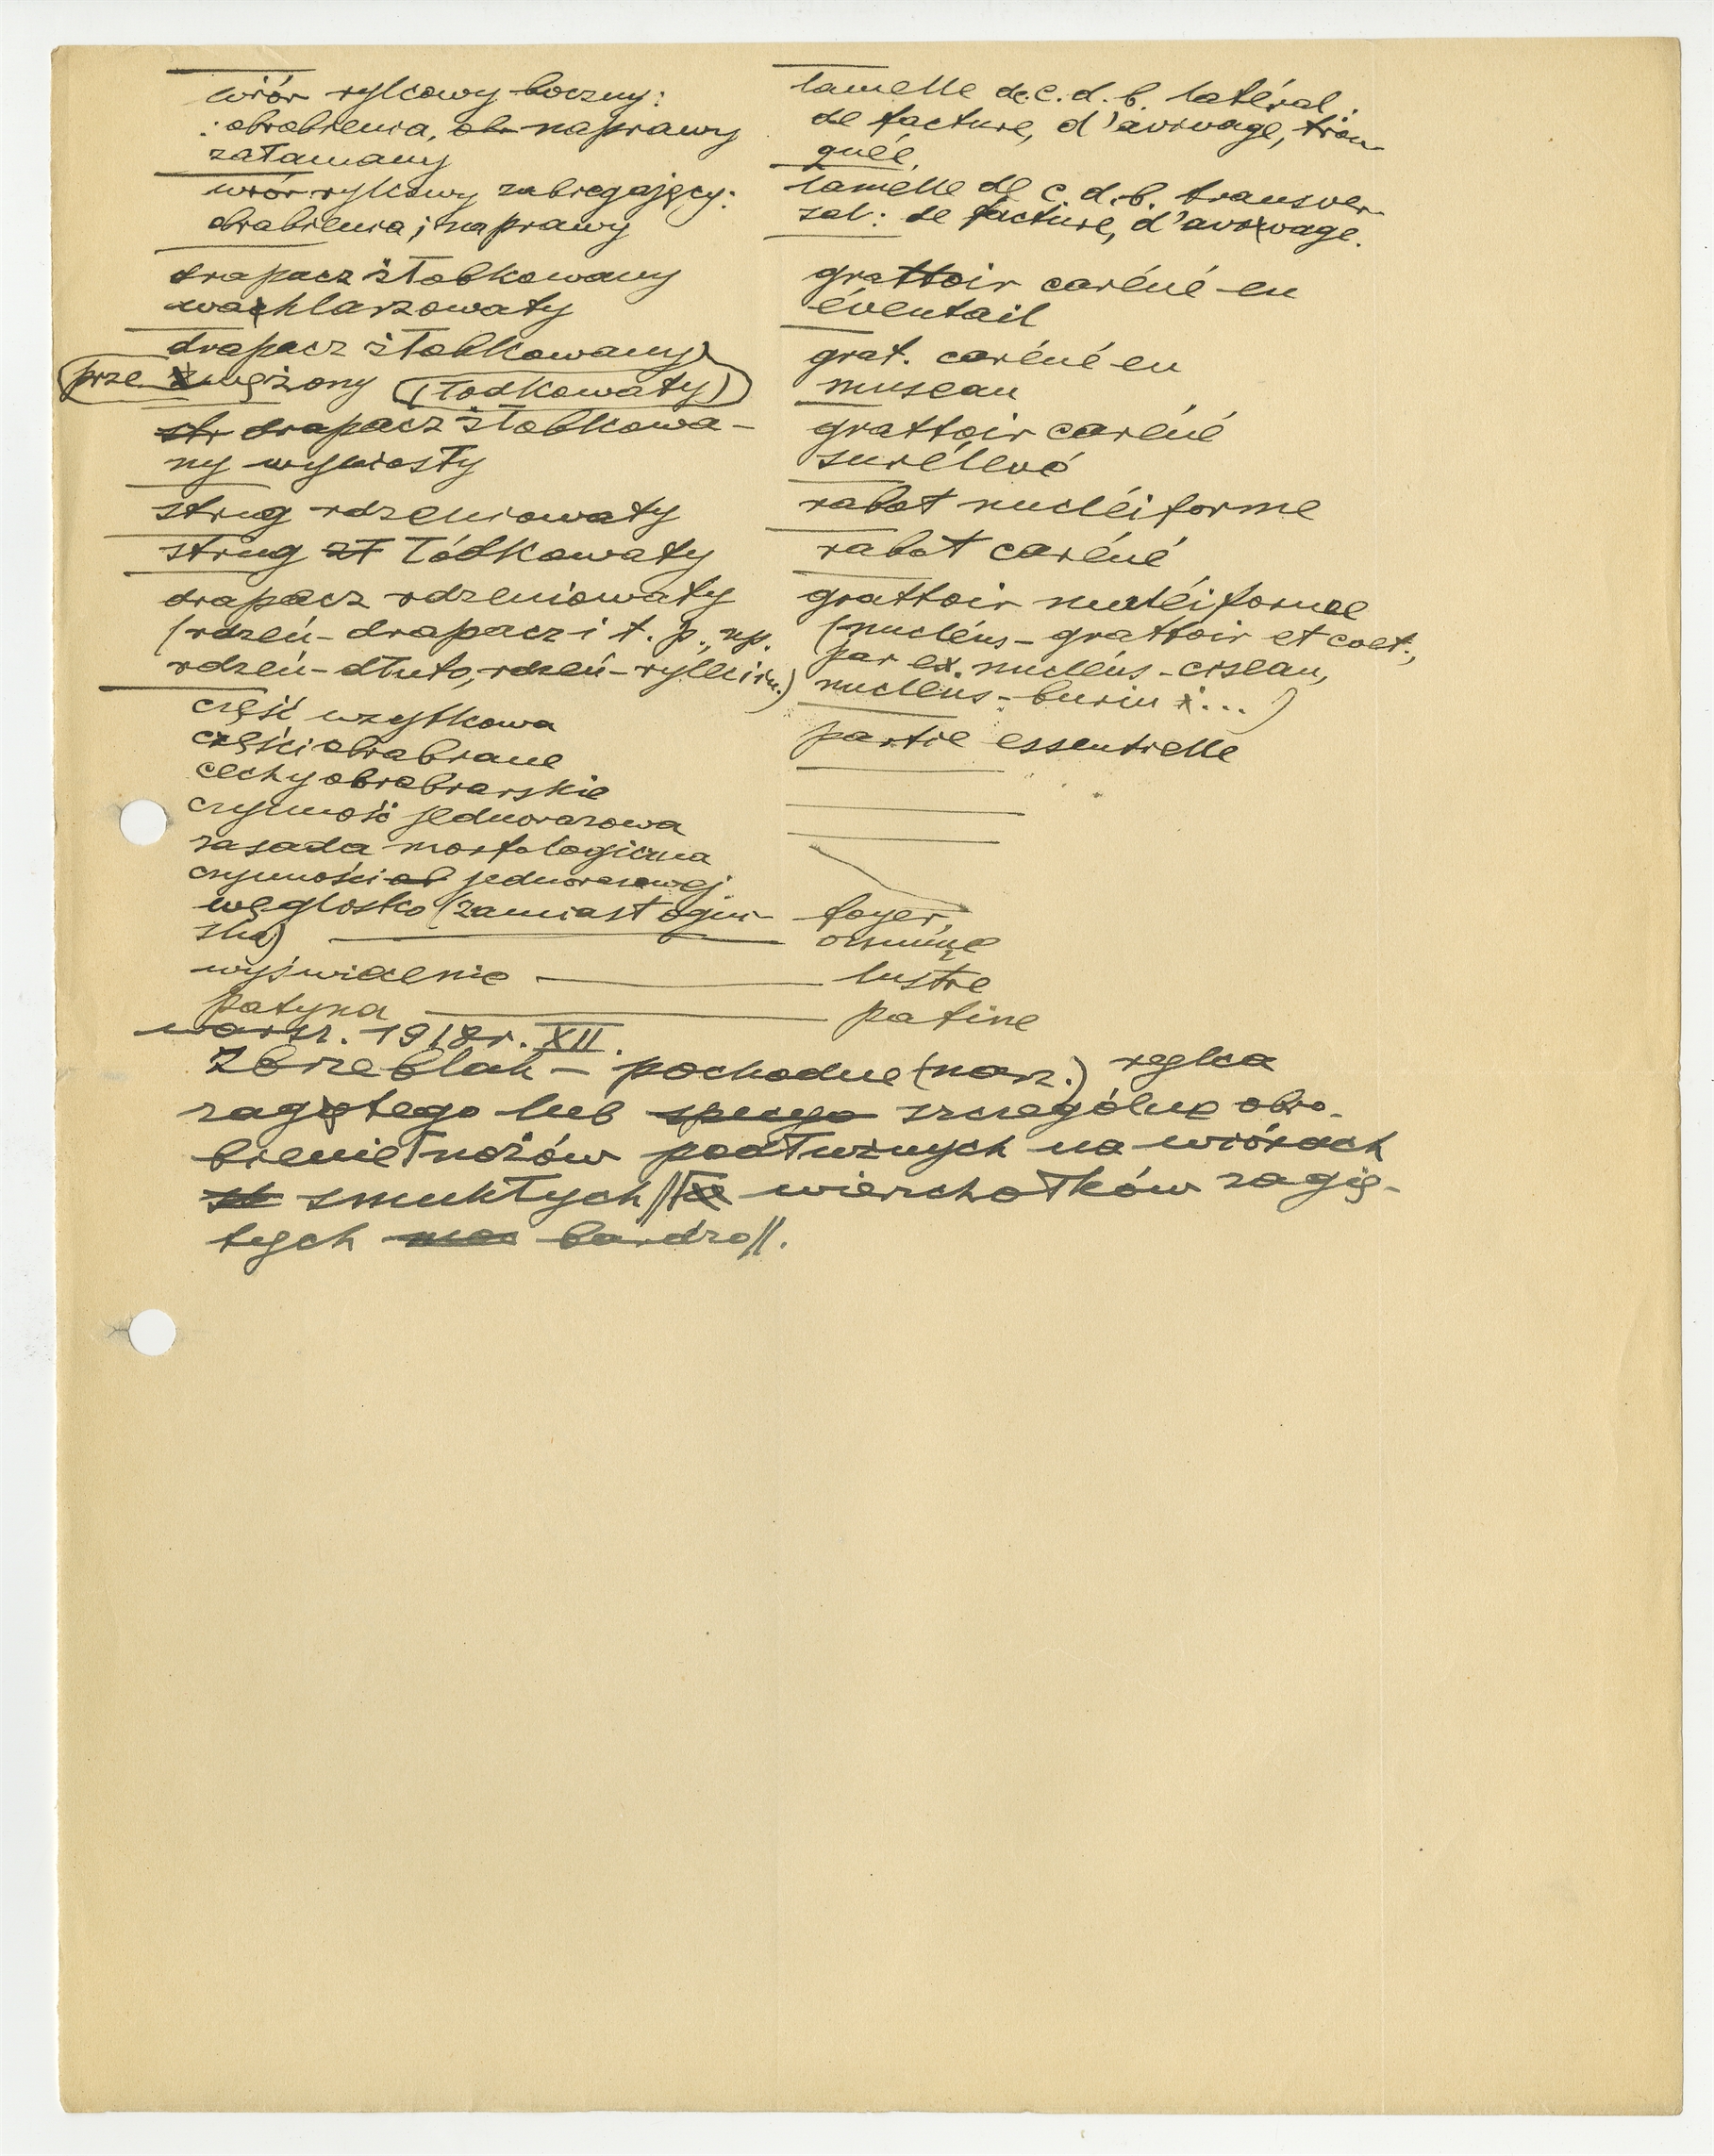 wiór rylcowy boczny:
: obrobienia, naprawy
załamany
lamelle de c. d. b. latéral:
de facture, d'avivage, tron-
quée.
wiór rylcowy zabiegający:
obrabienia; naprawy
lamelle de c. d. b. transver-
sal: de facture, d'avivage.
drapacz żłobkowany
wachlarzowaty
grattoir caréné en
éventail
drapacz żłobkowany
przewężony (łodkowaty)
grat. caréné en
museau
drapacz żłobkowa-
ny wyniosty
grattoir caréné
surélevé
strug rdzeniowaty
rabot nucléiforme
strug łódkowaty
rabot caréné
drapacz rdzeniowaty
(rdzeń-drapacz i t. p., np.
rdzeń-dłuto, rdzeń-rylec i in.)
grattoir nucléiforme
(nucléus-grattoir et coet.,
par ex. nucléus-ciseau,
nucléus-burin ...)
część użytkowa
partie essentielle
części obrabiane
cechy obrabiarskie
czynność jednorazowa
zasada morfologiczna
czynności jednorazowej
węglisko (zamiast ogni-
ska)
foyer,
wyświecenie lustre
patyna patine
warsz. 1918 r. XII.
Zbrzeblak – pochodne (narz.) rylca
zagiętego lub szczególne obro-
bienie nożów podłużnych na wiórach
smukłych // wierzchołków zagię-
tych bardzo //.